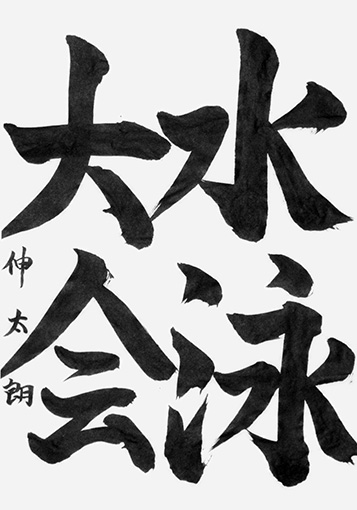 水泳
大会
伸太朗